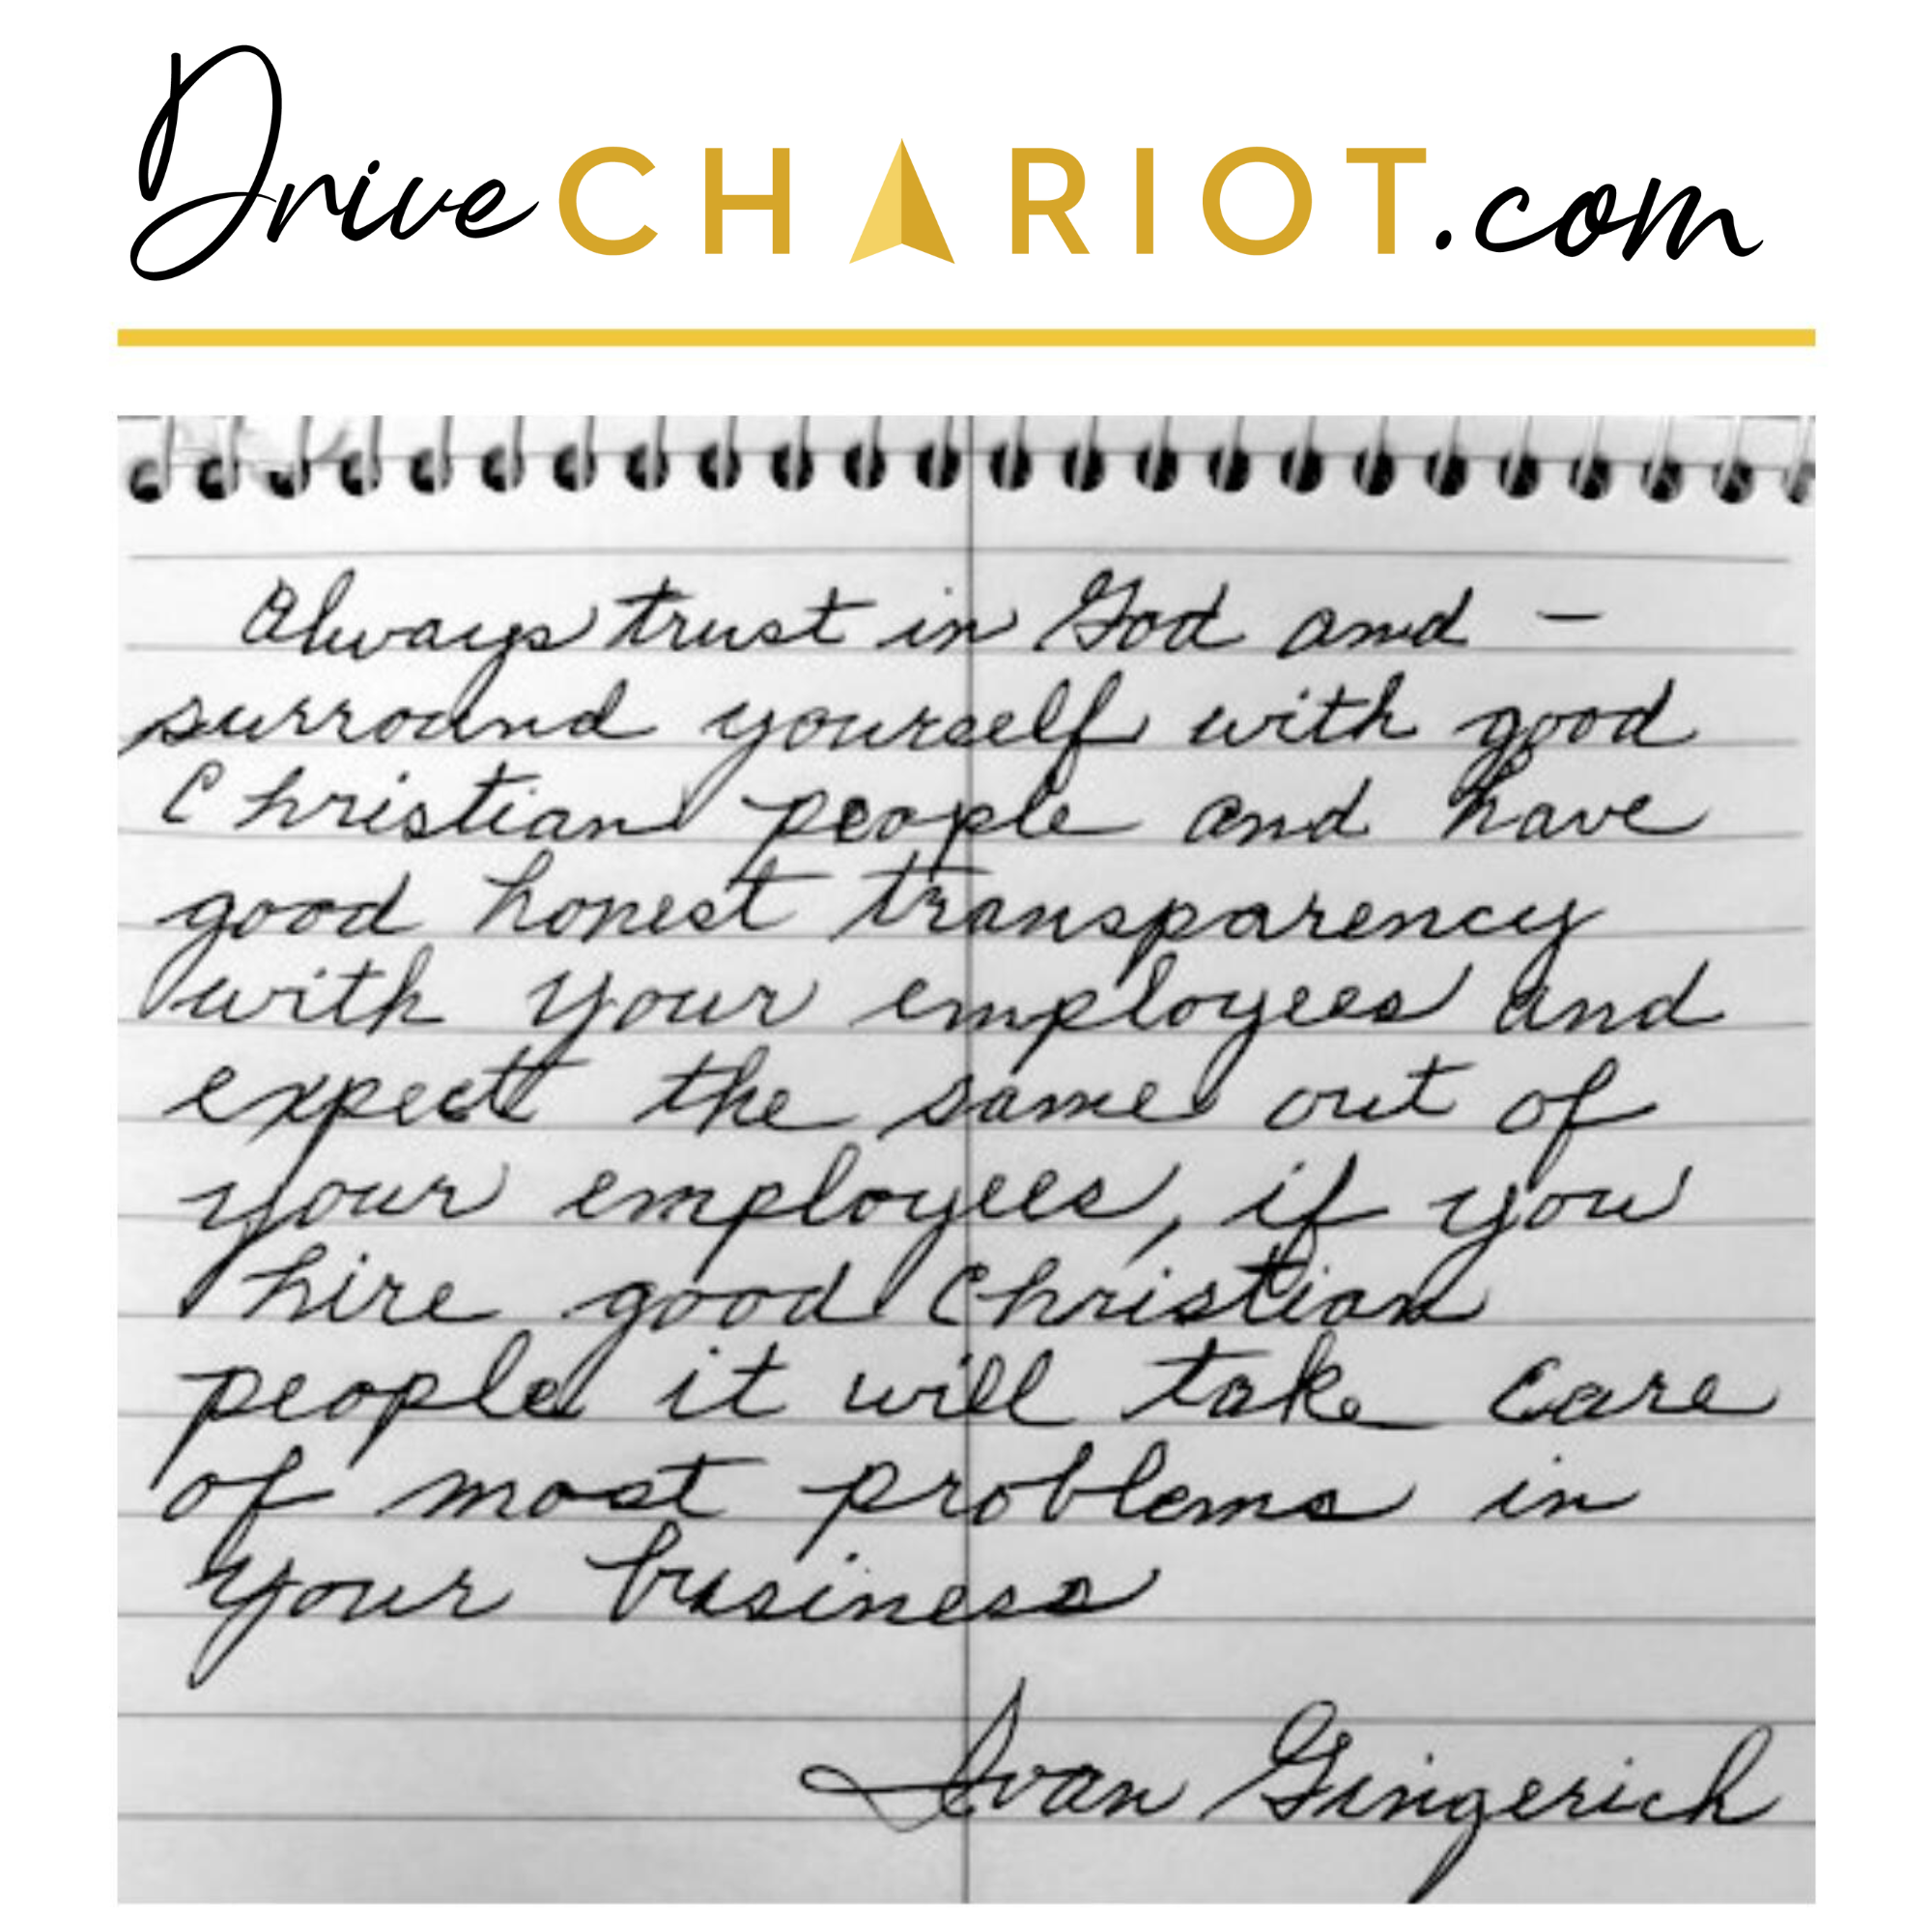 DriveCHARIOT.com
Always trust in God and –
surround yourself with good
Christian people and have
good honest transparency
with your employees and
expect the same out of
your employees, if you
hire good Christian
people it will take care
of most problems in
your business
Ivan Gingerich